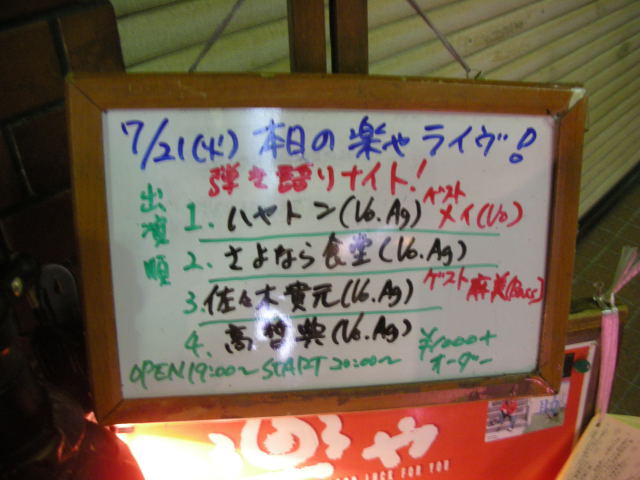 7/21(水) 本日の楽やライヴ!
弾き語りナイト!
出演順
1. ハヤトン(Vo.Ag) ゲスト メイ(Vo)
2. さよなら食堂(Vo.Ag)
3. 佐々木貴元(Vo.Ag) ゲスト 麻美(Bass)
4. 高哲典(Vo.Ag)
OPEN 19:00〜 START 20:00〜 ¥1000+オーダー
LUCK FOR YOU